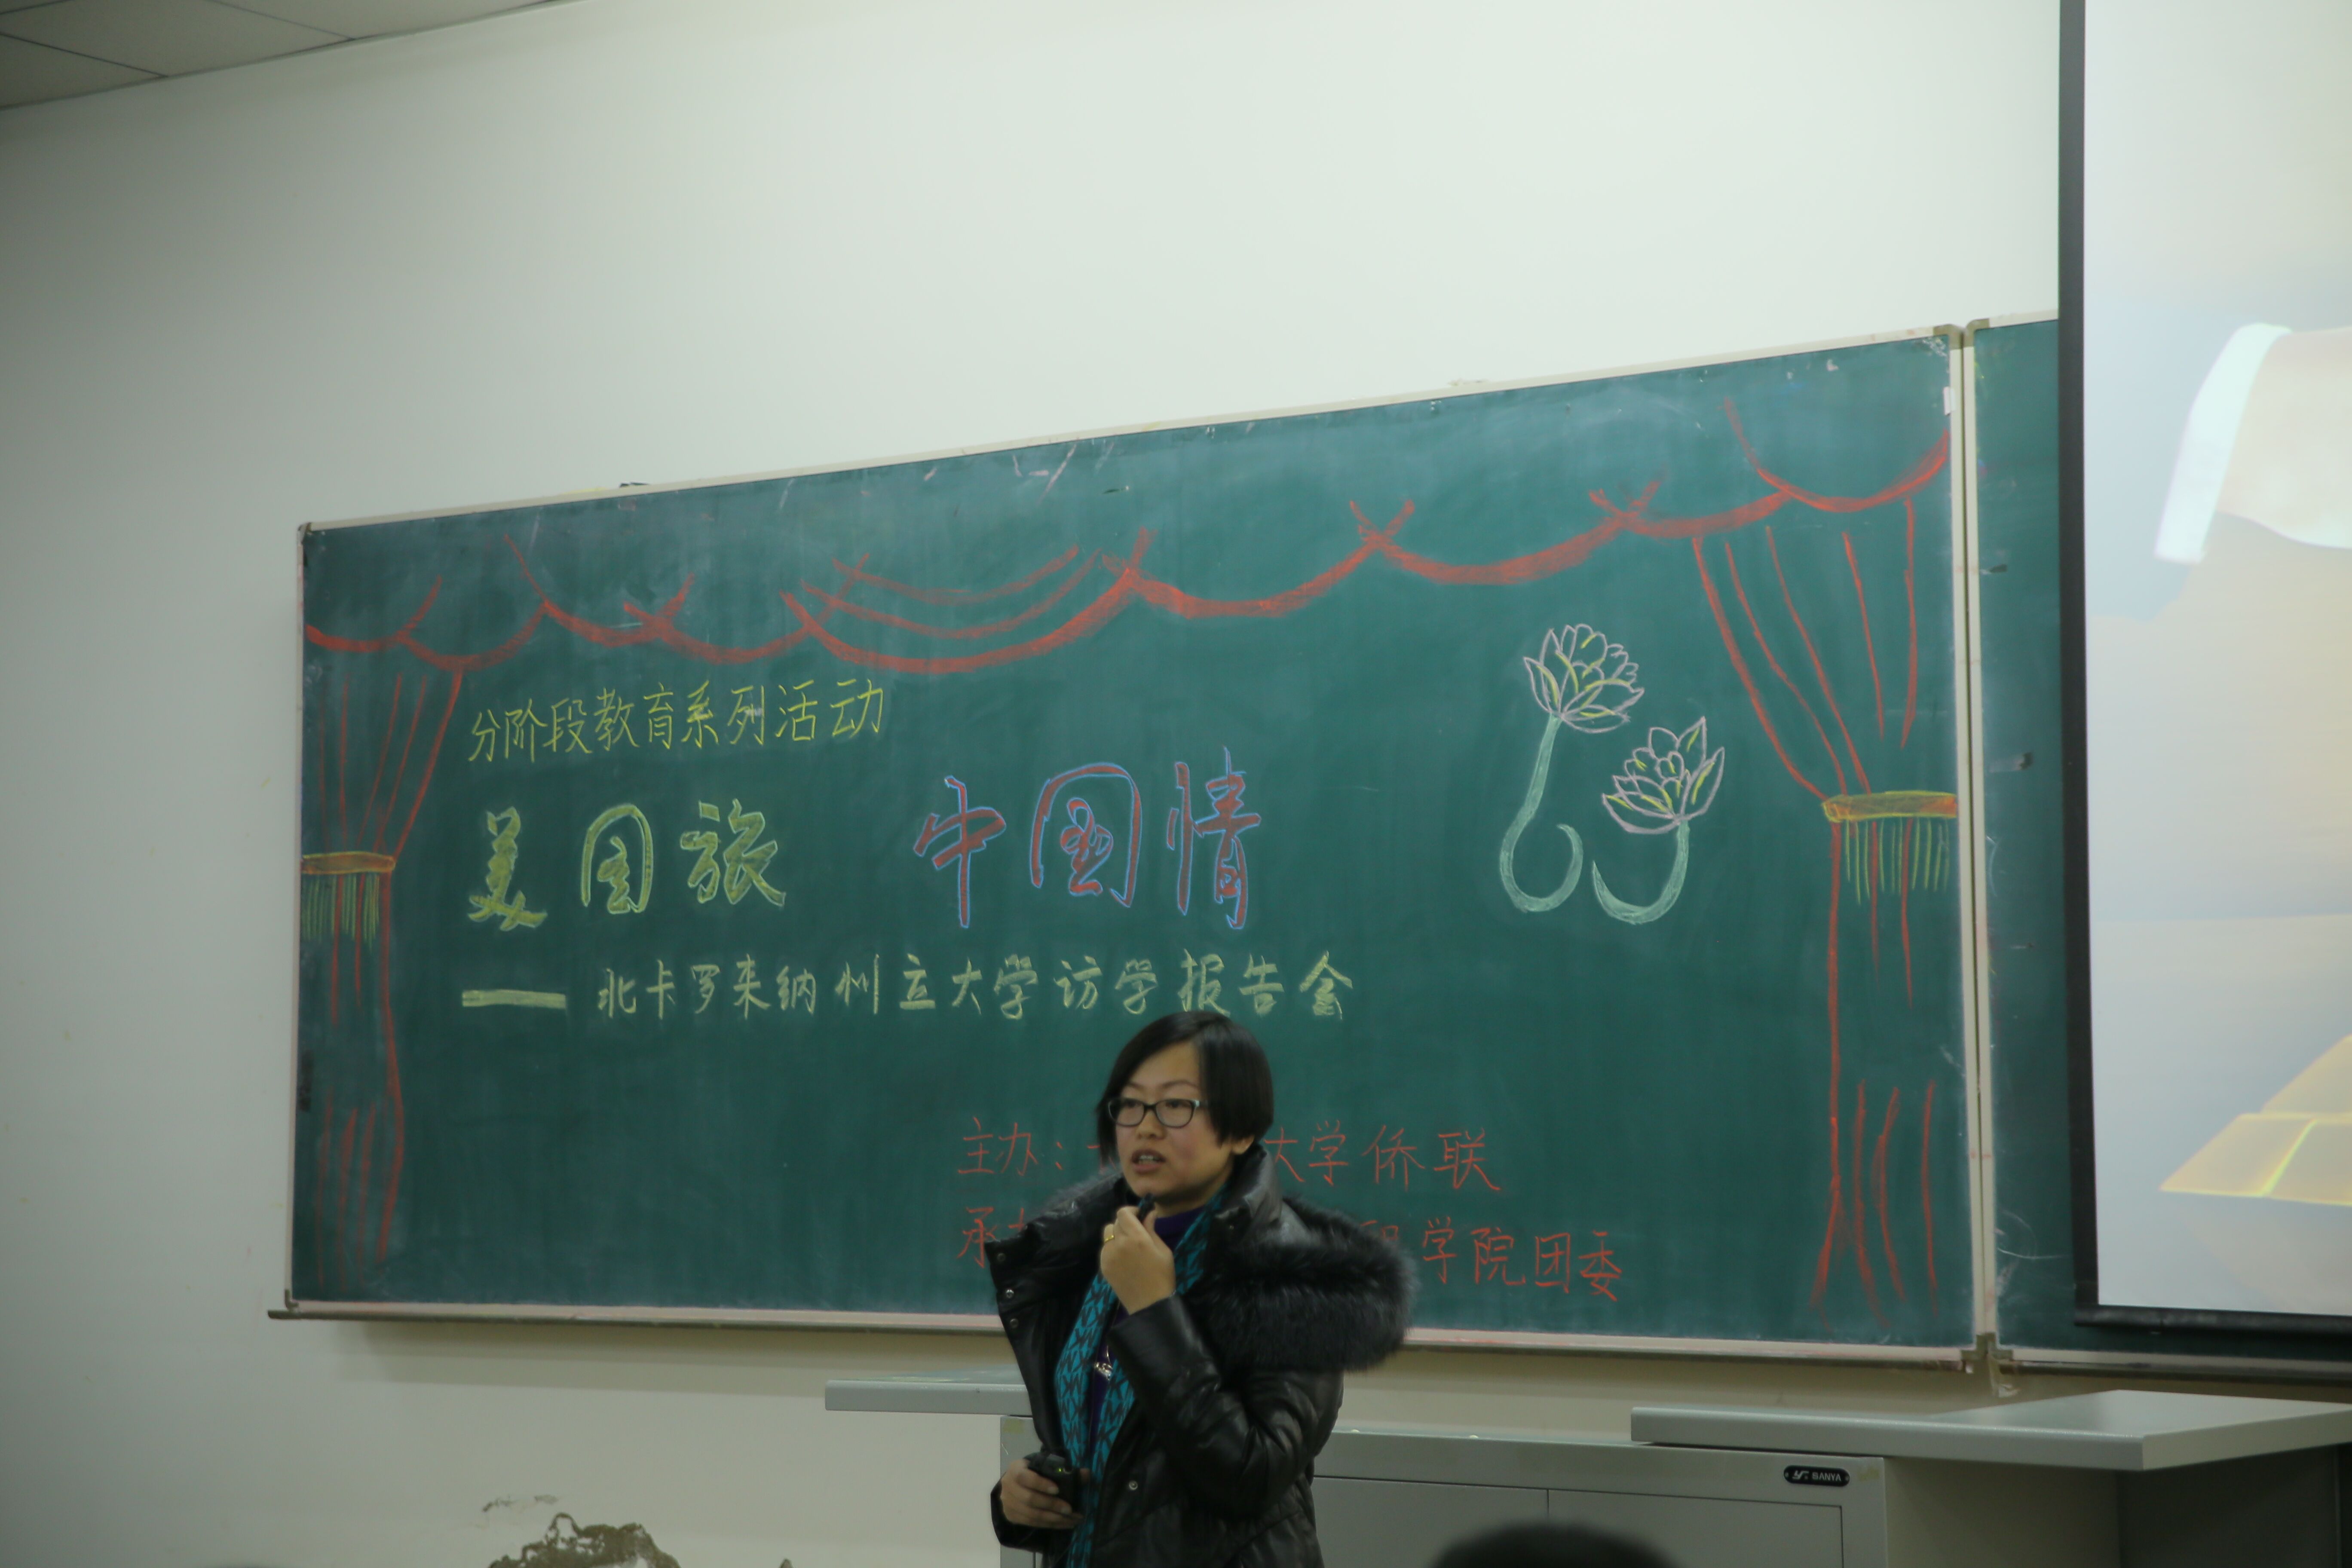 分阶段教育系列活动
美国旅 中国情
—— 北卡罗来纳州立大学访学报告会
主办： 大学侨联
承 学院团委
BANYA